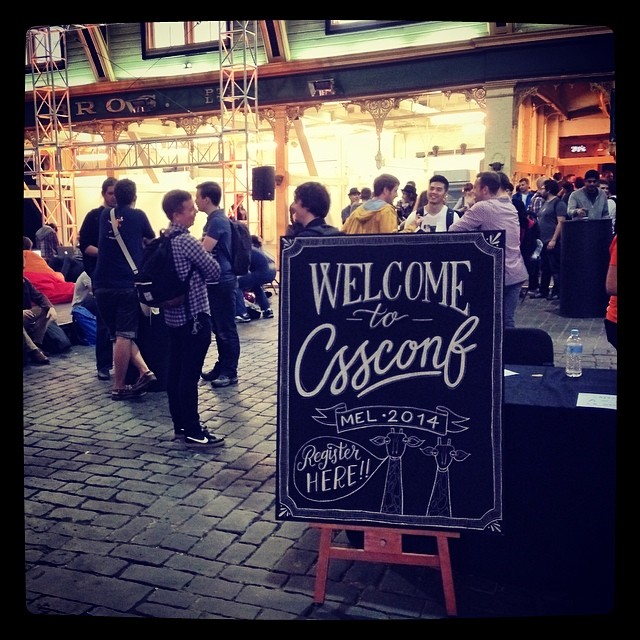 WELCOME
to
Cssconf
MEL·2014
Register
HERE!!